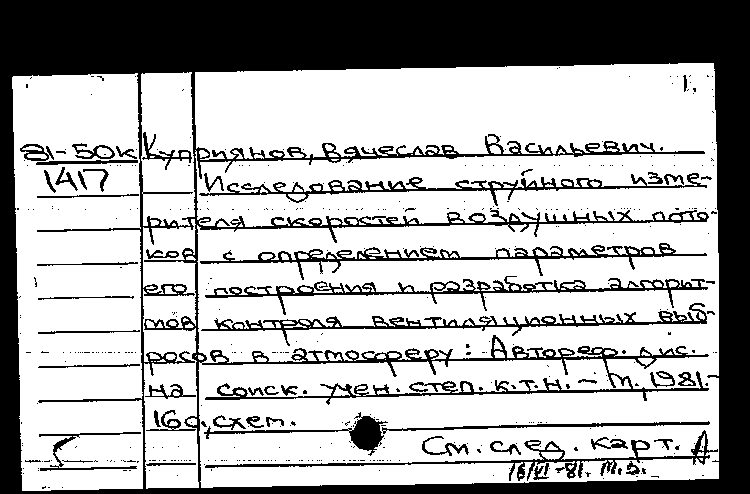 1.
81-50к Куприянов, Вячеслав Васильевич.
1417 Исследование струйного изме-
рителя скоростей воздушных пото-
ков с определением параметров
его построения и разработка алгорит-
мов контроля вентиляционных выб-
росов в атмосферу: Автореф. дис.
на соиск. учен. степ. к.т.н. - М., 1981.-
16с., схем.
См. след. карт. А
16/VI-81. М.Б.